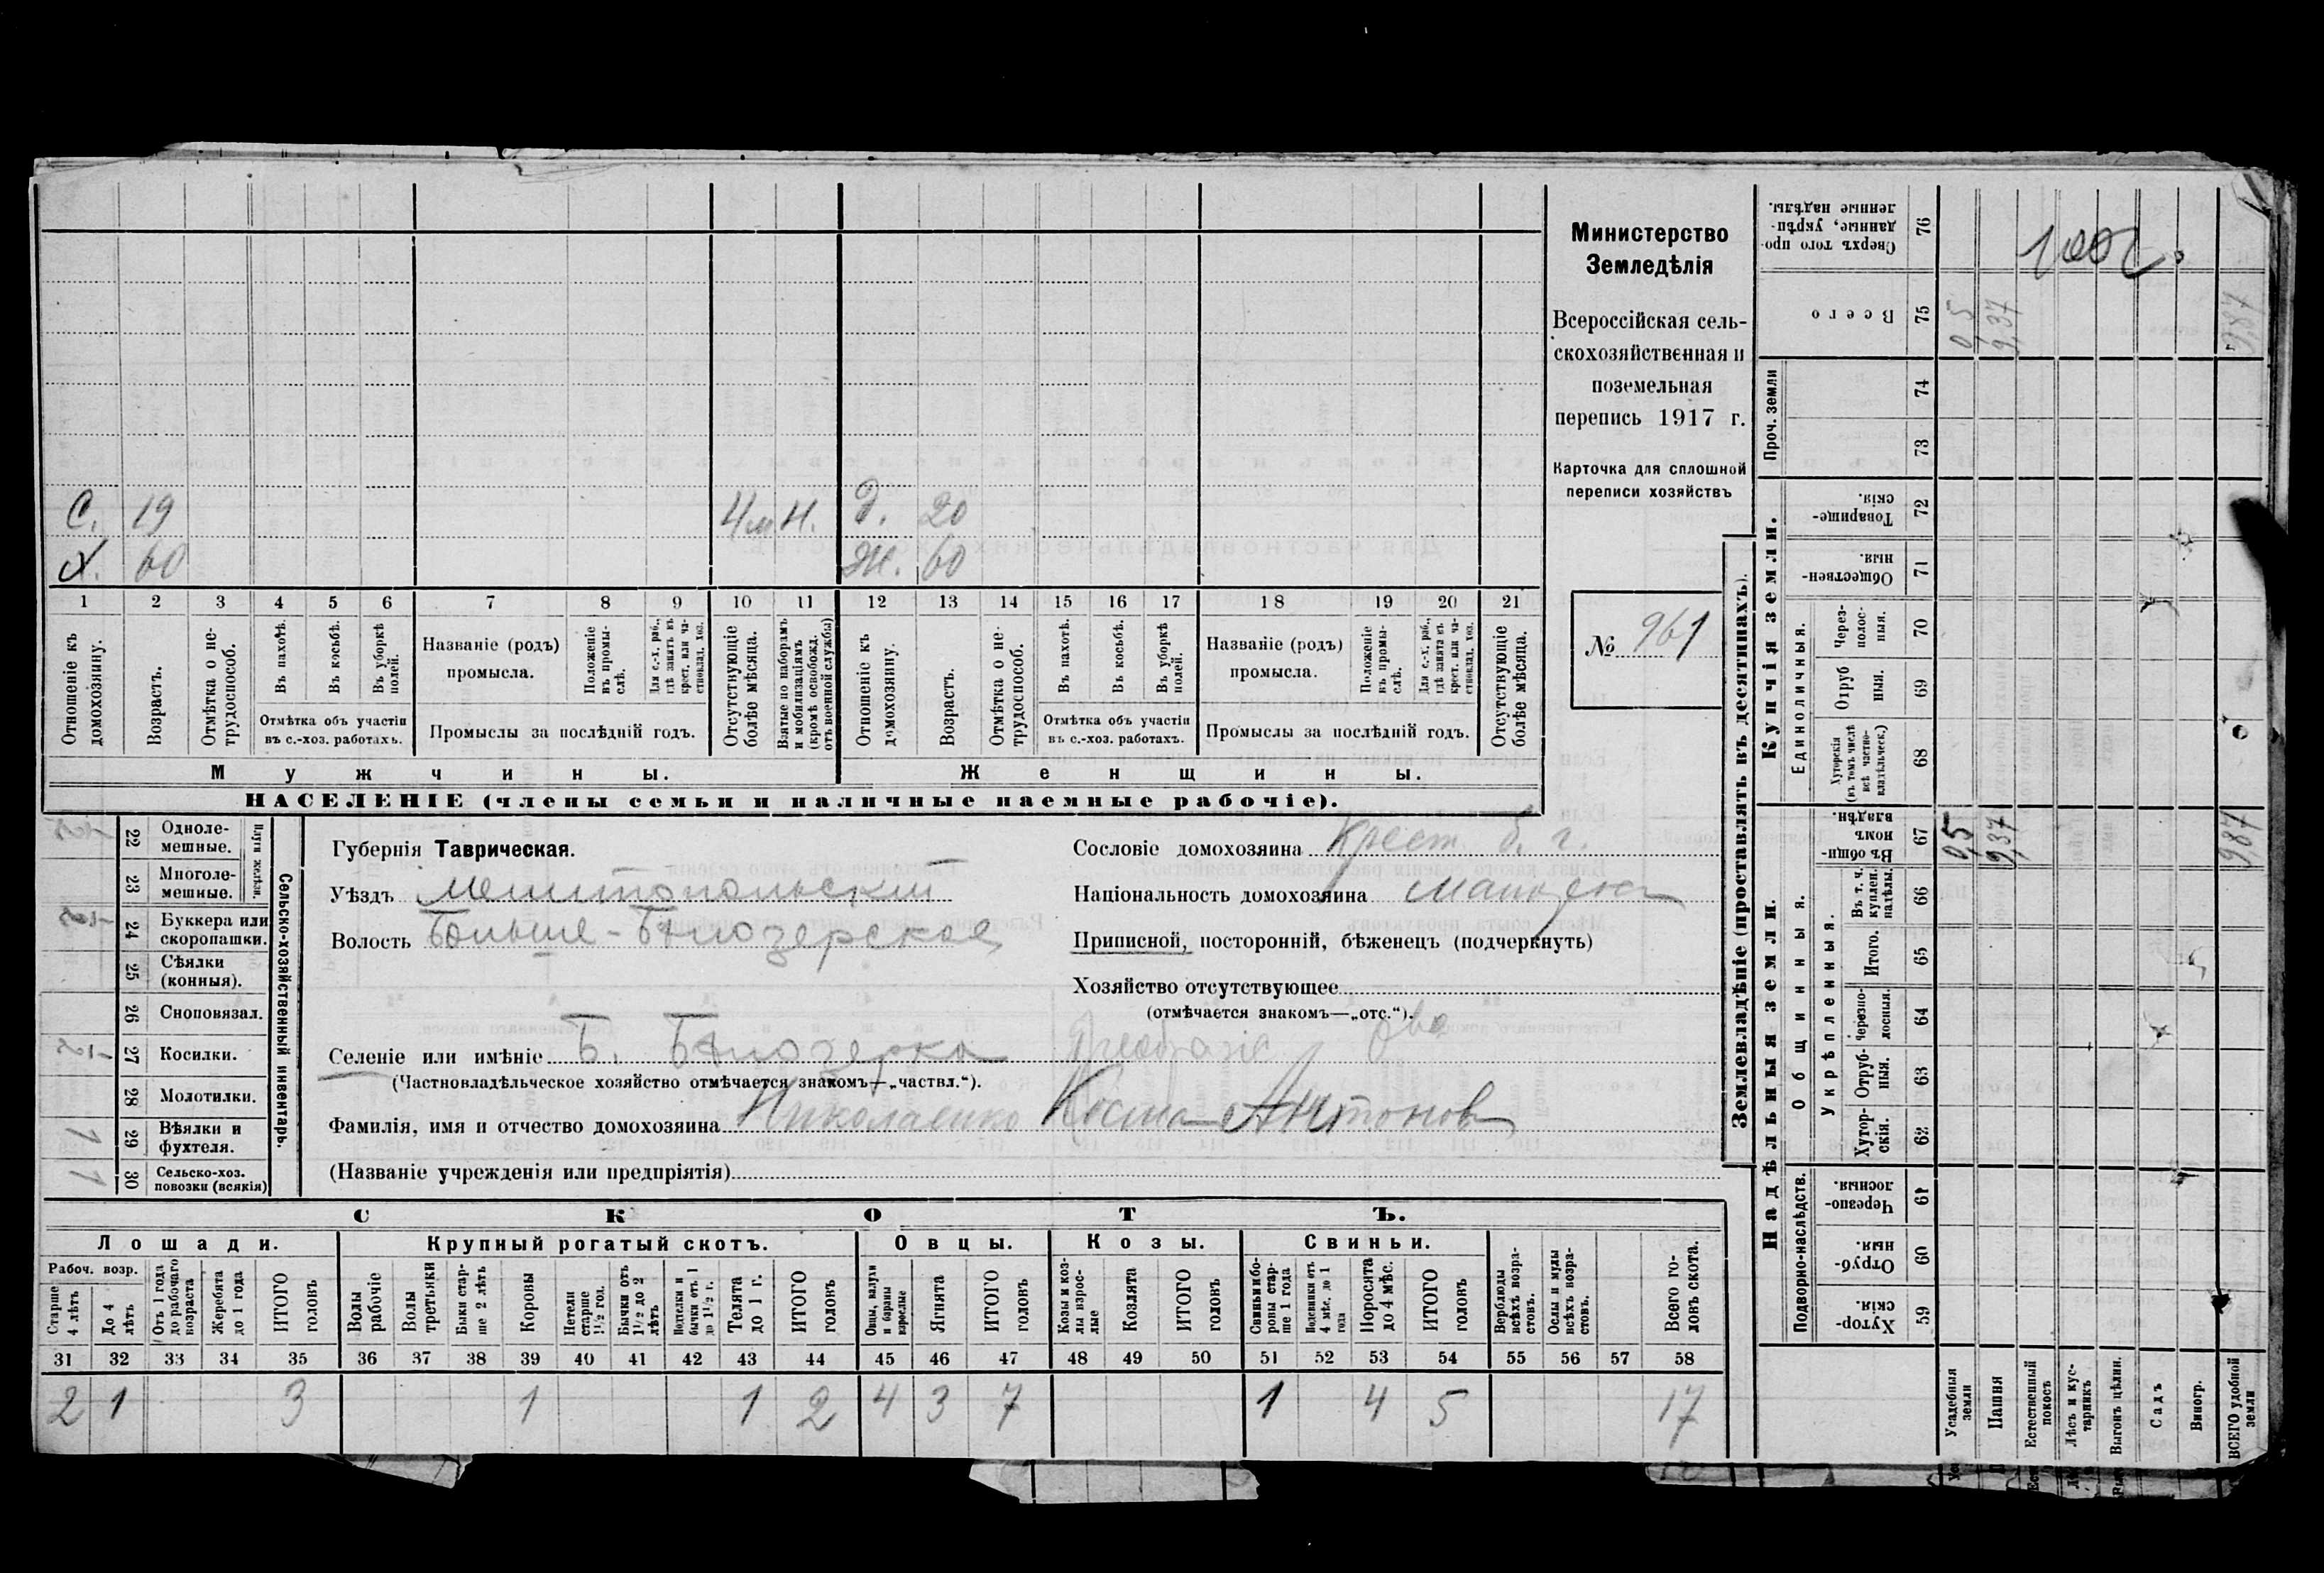 С. 19 4 м. Н. Д. 20
Х. 60 Ж. 60
1 2 3 4 5 6 7 8 9 10 11 12 13 14 15 16 17 18 19 20 21
Отношеніе къ домохозяину.
Возрастъ.
Отмѣтка о не-трудоспособ.
Въ пахотѣ.
Въ косьбѣ.
Въ уборкѣ полей.
Отмѣтка объ участіи
въ с.-хоз. работахъ.
Названіе (родъ)
промысла.
Положеніе въ промы-слѣ.
Для с.-х. раб., гдѣ занятъ въ крест. или ча-стновлад. хоз.
Промыслы за послѣдній годъ.
Отсутствующіе болѣе мѣсяца.
Взятые по наборамъ и мобилизаціямъ (кромѣ освобожд. отъ военной службы)
Отношеніе къ домохозяину.
Возрастъ.
Отмѣтка о не-трудоспособ.
Въ пахотѣ.
Въ косьбѣ.
Въ уборкѣ полей.
Отмѣтка объ участіи
въ с.-хоз. работахъ.
Названіе (родъ)
промысла.
Положеніе въ промы-слѣ.
Для с.-х. раб., гдѣ занята въ крест. или ча-стновлад. хоз.
Промыслы за послѣдній годъ.
Отсутствующіе болѣе мѣсяца.
Мужчины. Женщины.
НАСЕЛЕНІЕ (члены семьи и наличные наемные рабочіе).
Министерство
Земледѣлія
Всероссійская сель-
скохозяйственная и
поземельная
перепись 1917 г.
Карточка для сплошной
переписи хозяйствъ
№ 961
Сельско-хозяйственный инвентарь.
Плуги желѣзн.
22 Однолемешные.
23 Многолемешные.
24 Буккера или скоропашки.
25 Сѣялки (конныя).
26 Сноповязал.
27 Косилки.
28 Молотилки.
1 29 Вѣялки и фухтеля.
1 30 Сельско-хоз. повозки (всякія)
Губернія Таврическая.
Уѣздъ Мелитопольский
Волость Больше-Бѣлозерская
Сословіе домохозяина Крест. б. г.
Національность домохозяина
Приписной, посторонній, бѣженецъ (подчеркнуть)
Хозяйство отсутствующее
(отмѣчается знакомъ—„отс.“).
Селеніе или имѣніе Б. Бѣлозерка
(Частновладѣльческое хозяйство отмѣчается знакомъ—„частвл.“).
Фамилія, имя и отчество домохозяина Николаенко Косма Антонов
(Названіе учрежденія или предпріятія)
СКОТЪ.
Лошади. Крупный рогатый скотъ. Овцы. Козы. Свиньи.
Рабоч. возр.
Старше 4 лѣтъ
До 4 лѣтъ
Отъ 1 года до рабочаго возраста
Жеребята до 1 года
ИТОГО головъ
Волы рабочіе
Волы третьяки
Быки стар-ше 2 лѣтъ
Коровы
Нетели старше 1½ год.
Бычки отъ 1½ до 2 лѣтъ
Подтелки и бычки отъ 1 до 1½ г.
Телята до 1 г.
ИТОГО головъ
Овцы, валухи и бараны взрослые
Ягнята
ИТОГО головъ
Козы и коз-лы взрос-лые
Козлята
ИТОГО головъ
Свиньи и бо-ровы стар-ше 1 года
Подсвинки отъ 4 мѣс. до 1 года
Поросята до 4 мѣс.
ИТОГО головъ
Верблюды всѣхъ возра-стовъ.
Ослы и мулы всѣхъ возра-стовъ.
Всего го-ловъ скота.
31 32 33 34 35 36 37 38 39 40 41 42 43 44 45 46 47 48 49 50 51 52 53 54 55 56 57 58
2 1 3 1 1 2 4 3 7 1 4 5 17
Землевладѣніе (проставлять въ десятинахъ).
Сверхъ того про-данные, укрѣп-ленные надѣлы. 76
Всего 75 0,5 9,37 9,87
Проч. земли 74
73
Купчія земли.
Товарище-скія. 72
Обществен-ныя. 71
Единоличныя.
Через-полос-ныя. 70
Отруб-ныя. 69
Хуторскія (въ томъ числѣ всѣ частно-владѣльческ.) 68
Надѣльныя земли.
Общинныя.
Въ общи-номъ владѣн. 67 0,5 9,37 9,87
Укрѣпленныя.
Въ т. ч. куплен. надѣлы. 66
Итого. 65
Черезпо-лосныя. 64
Отруб-ныя. 63
Хутор-скія. 62
Подворно-наслѣдств.
Черезпо-лосныя. 61
Отруб-ныя. 60
Хутор-скія. 59
Усадебныя земли
Пашня
Естественный покосъ
Лѣсъ и кус-тарникъ
Выгонъ цѣлин.
Садъ
Виногр.
ВСЕГО удобной земли